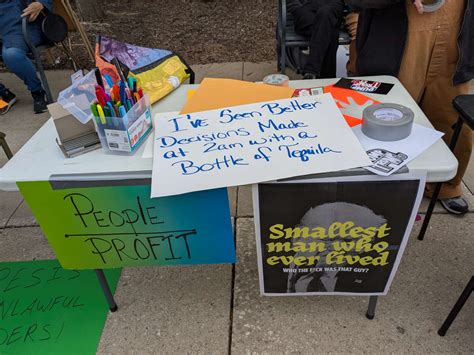 I've Seen Better
Decisions Made
at 2am with a
Bottle of Tequila
People
PROFIT
Smallest
man who
ever lived
WHO THE F*CK WAS THAT GUY?
UNLAWFUL